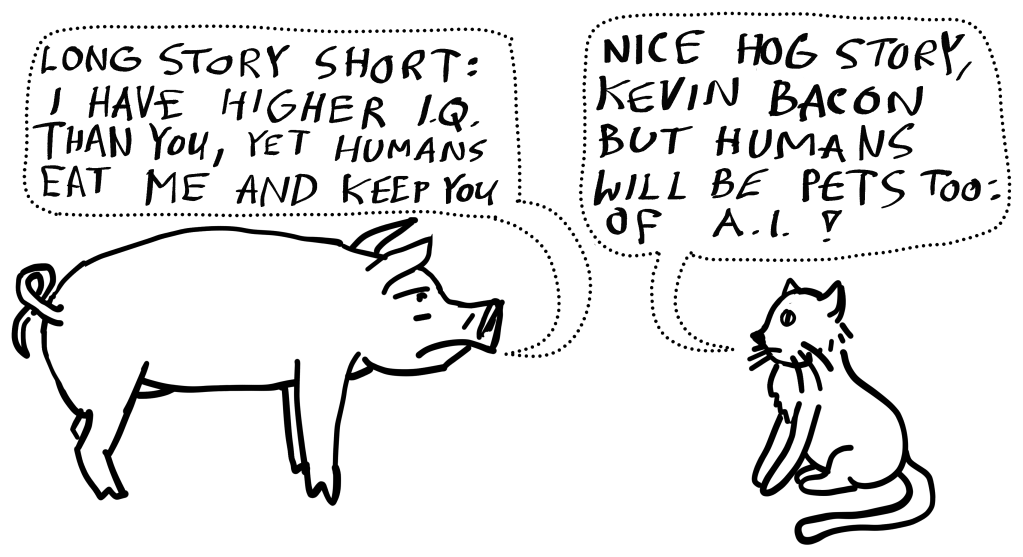 LONG STORY SHORT:
I HAVE HIGHER I.Q.
THAN YOU, YET HUMANS
EAT ME AND KEEP YOU
NICE HOG STORY,
KEVIN BACON
BUT HUMANS
WILL BE PETS TOO:
OF A.I. !